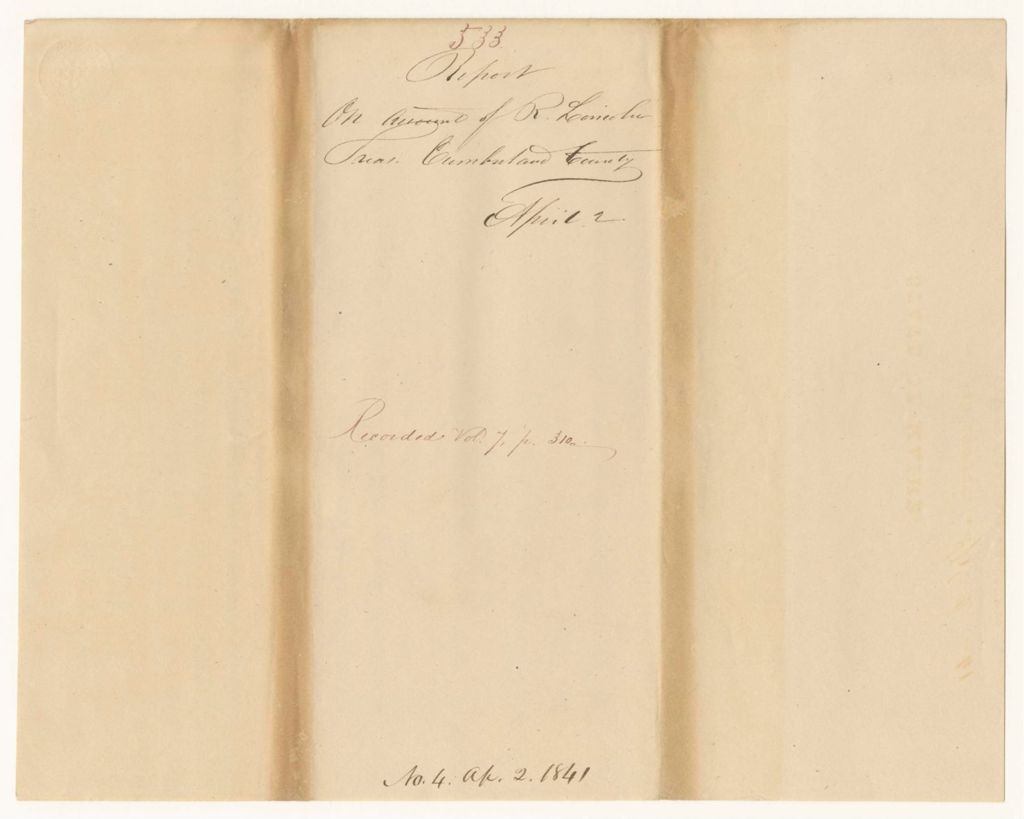 533
Report
On Account of R. Lincoln
Treas. Cumberland County
April 2
Recorded Vol. 7, p. 310
No. 4. Ap. 2. 1841
STATE OF MAINE